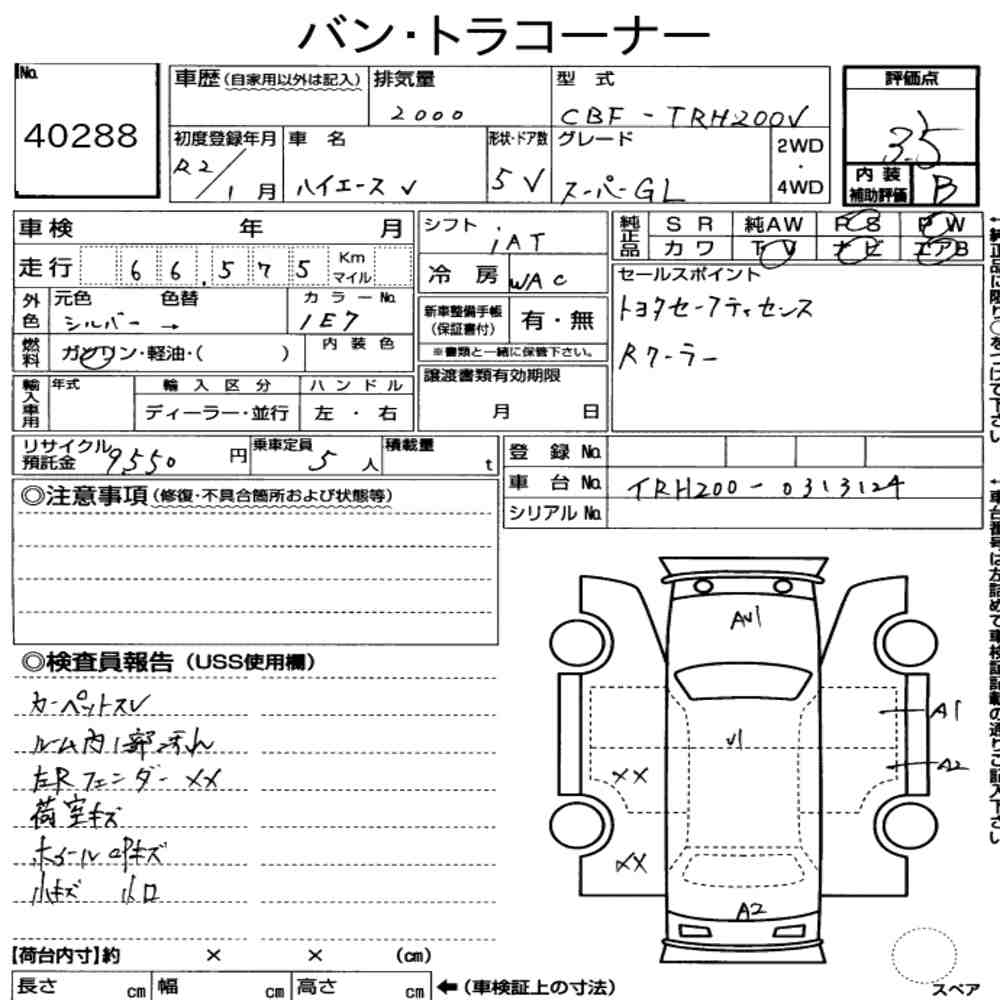 バン・トラコーナー
No. 40288
車歴(自家用以外は記入) 排気量 2000 型 式 CBF-TRH200V
初度登録年月 R2/1月 車 名 ハイエースV 形状・ドア数 5V グレード スーパーGL 2WD・4WD
評価点 3.5
内装補助評価 B
車検 年 月
走行 66,575 Km マイル
外色 元色 シルバー → 色替 カラーNo. 1E7
燃料 ガソリン・軽油・( ) 内装色
輸入車用 年式 輸入区分 ディーラー・並行 ハンドル 左・右
シフト iAT
冷房 WAC
新車整備手帳(保証書付) 有・無
※書類と一緒に保管下さい。
譲渡書類有効期限 月 日
純正品 SR 純AW PS PW
カワ TV ナビ エアB
セールスポイント
トヨタセーフティセンス
Rクーラー
←純正品に限り○をつけて下さい
リサイクル預託金 9550円 乗車定員 5人 積載量 t
登録 No.
車台 No. TRH200-0313124
シリアル No.
←車台番号は左詰めで車検証記載の通りご記入下さい
◎注意事項(修復・不具合箇所および状態等)
◎検査員報告(USS使用欄)
カーペットスレ
ルーム内1部汚れ
左Rフェンダー XX
荷室キズ
ホイールCPキズ
小キズ 小凹
AU1
A1
U1
A2
XX
XX
A2
【荷台内寸】約 × × (cm)
長さ cm 幅 cm 高さ cm ←(車検証上の寸法)
スペア